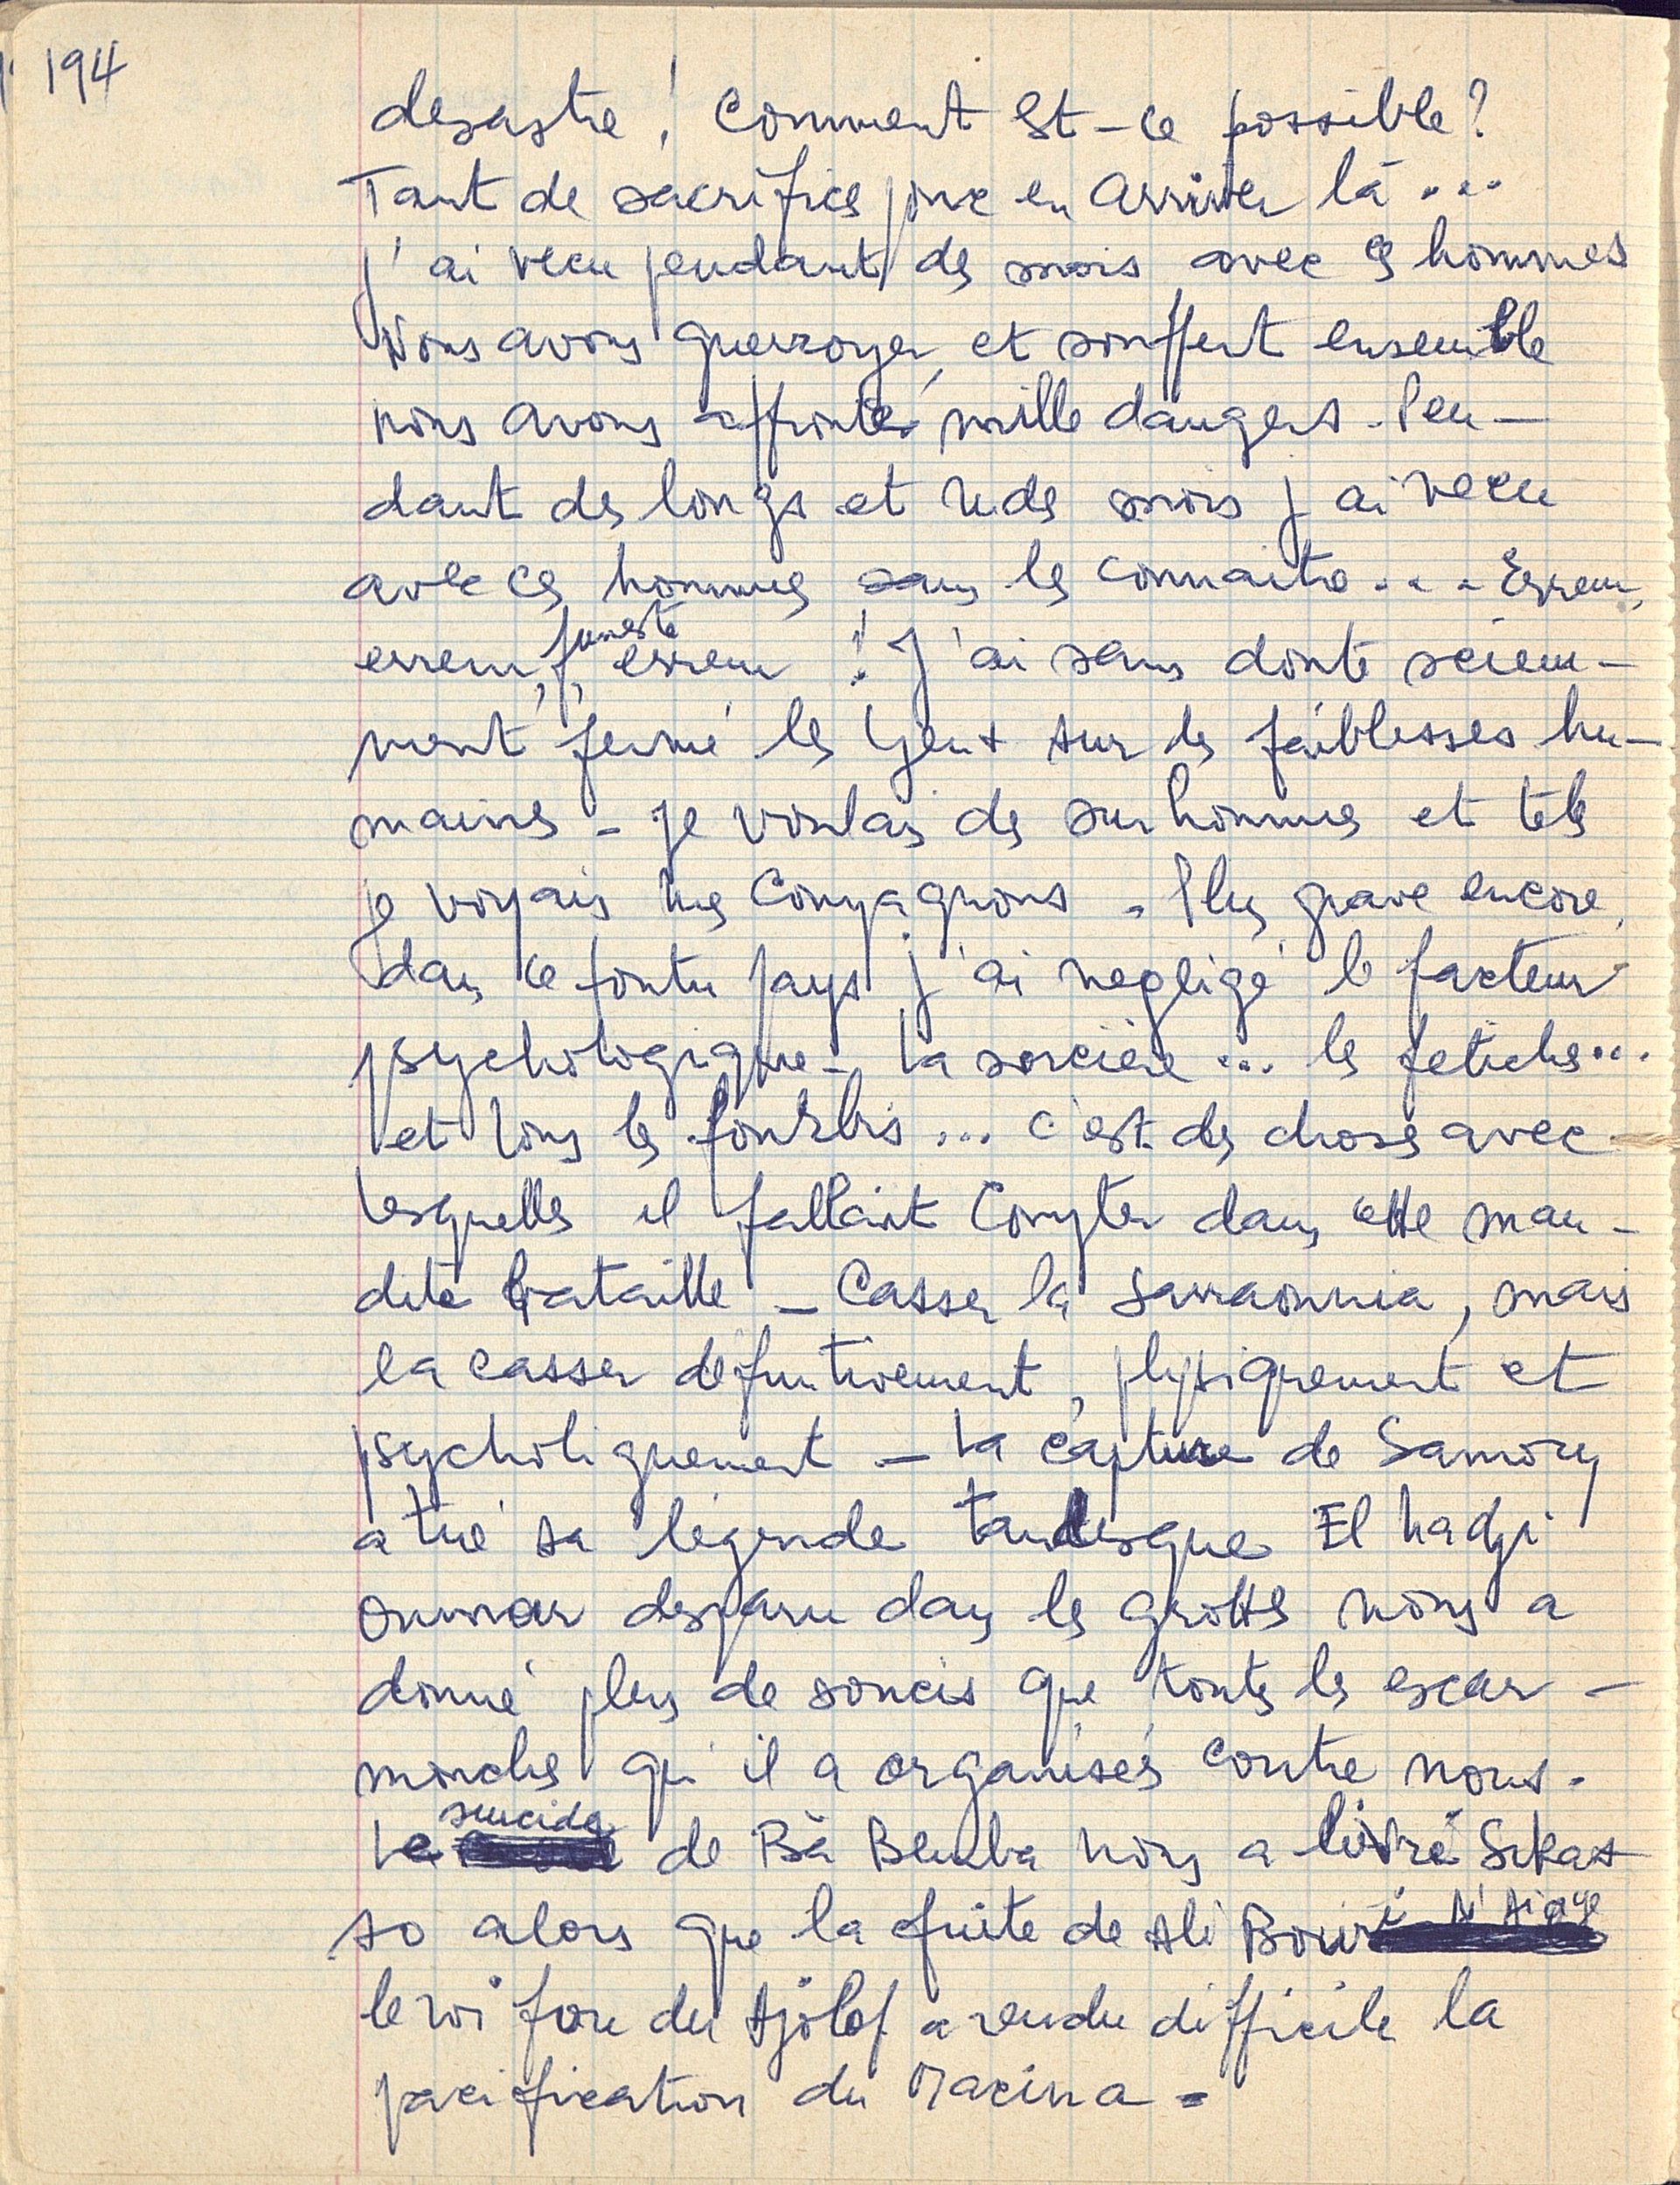 194
desastre ! Comment est-ce possible ?
Tant de sacrifices pour en arriver là ...
J'ai vecu pendant des mois avec ces hommes
Nous avons guerroyer, et souffert ensemble
nous avons affronter mille dangers. Pen-
dant des longs et rudes mois j'ai vecu
avec ces hommes sans les connaitre... Erreur,
erreur, funeste erreur ! J'ai sans doute sciem-
ment fermé les yeux sur des faiblesses hu-
maines - je voulais des surhommes et tels
je voyais mes compagnons - Plus grave encore,
dans ce foutu pays j'ai negligé le facteur
psychologique - La sorcière ... les fetiches...
et tous les fourbis ... c'est des choses avec
lesquelles il fallait compter dans cette mau-
dite bataille - Casser la Sarraounia, mais
la casser définitivement, physiquement et
psycholiquement - La capture de Samory
a tué sa légende tandisque El hadji
Oumar disparu dans les grottes nous a
donné plus de soucis que toutes les escar-
mouches qu'il a organisés contre nous.
Le suicide de Bà Bemba nous a livré Sikas
so alors que la fuite de Ali Bouri N'Diaye
le roi fou du Djolof a rendu difficile la
pacification du Macina -